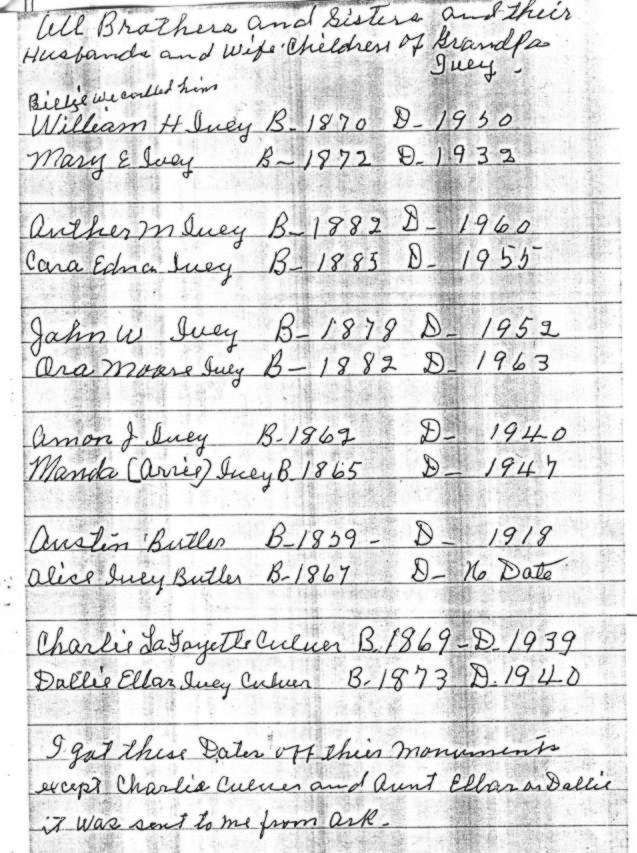 All Brothers and Sisters and their
Husbands and Wife. Children of Grandpa
Ivey.
Billie we called him
William H Ivey B- 1870 D- 1950
Mary E Ivey B- 1872 D- 1932
Anther M Ivey B- 1882 D- 1960
Cara Edna Ivey B- 1885 D- 1955
John W Ivey B- 1878 D- 1952
Ora Moore Ivey B- 1882 D- 1963
Amon J Ivey B- 1862 D- 1940
Manda (Arrie) Ivey B. 1865 D- 1947
Austin Butler B-1859 - D- 1918
Alice Ivey Butler B- 1867 D- No Date
Charlie LaFayette Culver B. 1869 - D- 1939
Dallie Ellar Ivey Culver B- 1873 D. 1940
I got these Dates off their monuments
except Charlie Culver and Aunt Ellar or Dallie
it was sent to me from Ark.